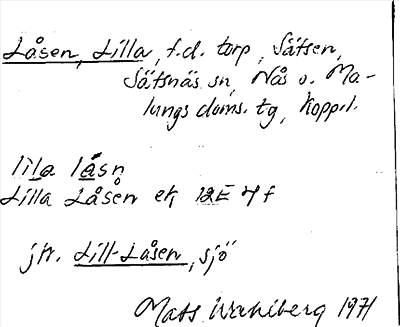 Låsen, Lilla, f.d. torp, Sätsen,
Sätsnäs sn, Nås o. Ma-
lungs doms. tg, Koppl.
lila låsn
Lilla Låsen ek, 12E 4f
jfr. Lill-Låsen, sjö
Mats Wahlberg 1971